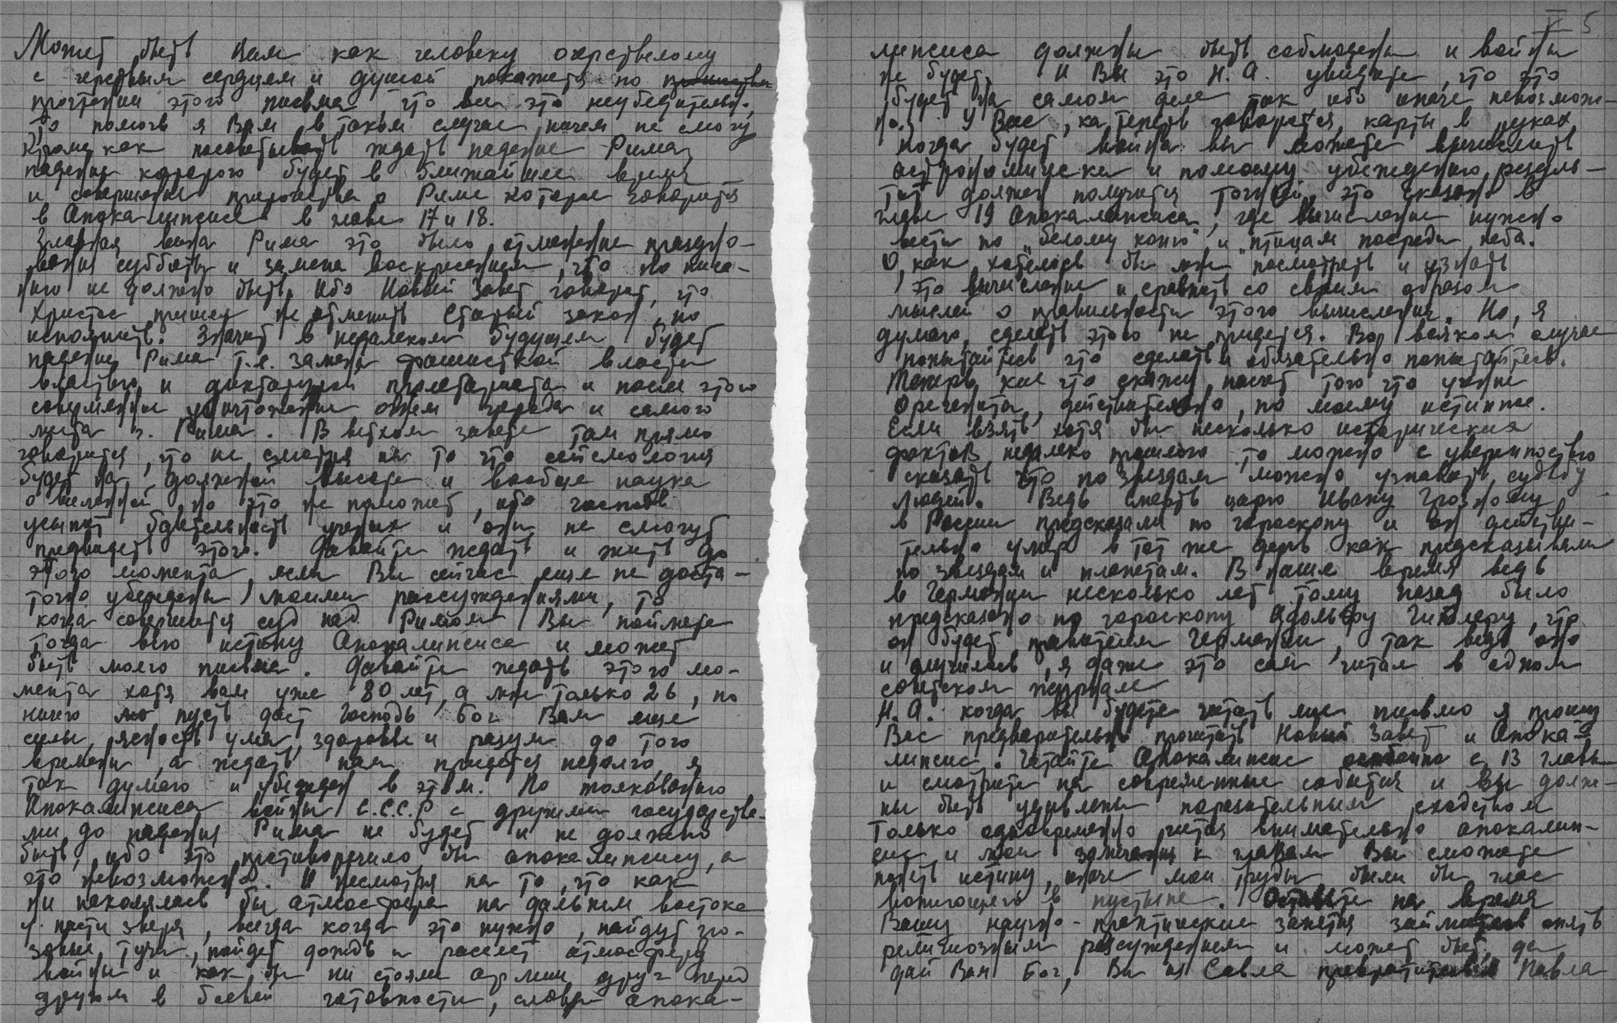 Может быть Вам как человеку очерствелому
с черствым сердцем и душой покажется по
прочтении этого письма, что все это неубедительно,
то помочь я Вам в таком случае ничем не смогу
кроме как посоветывать ждать падение Рима,
падение которого будет в ближайшее время
и совершение пророчества о Риме которое говорится
в Апокалипсисе в главе 17 и 18.
Главная вина Рима это было отменение праздно-
вания субботы и замена воскресением, что по писа-
нию не должно быть, ибо Новый Завет говорит, что
Христос пришел не отменить Старый закон, но
исполнить. Значит в недалеком будущем будет
падение Рима т.е. замена фашистской власти
властью и диктатурой пролетариата и после этого
совершенное уничтожение огнем города и самого
места г. Рима. В ветхом завете там прямо
говорится, что не смотря на то что сейсмология
будет на должной высоте и вообще наука
о вселенной, но это не поможет, ибо господь
усыпит бдительность ученых и они не смогут
предвидеть этого. Давайте ждать и жить до
этого момента, если Вы сейчас еще не доста-
точно убеждены моими рассуждениями, то
когда совершится суд над Римом Вы поймете
тогда всю истину Апокалипсиса и может
быть моего письма. Давайте ждать этого мо-
мента хотя вам уже 80 лет, а мне только 26, но
ничего пусть даст Господь Бог Вам еще
силы, ясность ума, здоровье и разум до того
времени, а ждать нам придется недолго, я
так думаю и убежден в этом. По толкованию
Апокалипсиса войны С.С.С.Р. с другими государства-
ми до падения Рима не будет и не должно
быть, ибо это противоречило бы апокалипсису, а
это невозможно. И несмотря на то, что как
ни накалялась бы атмосфера на дальнем востоке
у пасти зверя, всегда когда это нужно, найдут гро-
зовые тучи, пойдет дождь и рассеет атмосферу
войны и как бы ни стояли армии друг перед
другом в боевой готовности, слова апока-
V 5
липсиса должны быть соблюдены и войны
не будет. И Вы это Н.А. увидите, что это
будет на самом деле так ибо иначе невозмож-
но. У Вас, как теперь говорится, карты в руках
когда будет война вы можете вычислить
астрономически и по моему убеждению резуль-
тат должен получится точный, это указано в
главе 19 Апокалипсиса, где вычисление нужно
вести по „белому коню" и „птицам посреди неба.
О, как хотелось бы мне посмотреть и узнать
это вычисление и сравнить со своим образом
мыслей о правильности этого вычисления. Но, я
думаю, сделать этого не придется. Во всяком случае
попытайтесь это сделать и обязательно попытайтесь.
Теперь кое что скажу насчет того что учение
действительно, по моему истинно.
Если взять хотя бы несколько исторических
фактов недалеко прошлого то можно с уверенностью
сказать что по звездам можно узнавать судьбу
людей. Ведь смерть царю Ивану Грозному
в России предсказали по гороскопу и он действи-
тельно умер в тот же день как предсказывали
по звездам и планетам. В наше время ведь
в Германии несколько лет тому назад было
предсказано по гороскопу Адольфу Гитлеру, что
он будет правителем Германии, так ведь оно
и случилось, я даже это сам читал в одном
советском журнале
Н.А. когда вы будете читать мое письмо я прошу
Вас предварительно прочитать Новый Завет и Апока-
липсис. Читайте Апокалипсис особенно с 13 главы
и смотрите на современные события и Вы долж-
ны быть удивлены поразительным сходством
Только одновременно читая внимательно апокалип-
сис и мои замечания к главам Вы сможете
понять истину, иначе мои труды были бы глас
вопиющего в пустыне. Оставьте на время
Вашу научно-практические занятия займитесь опять
религиозным рассуждением и может быть, да
дай Вам Бог, Вы из Савла превратитесь в Павла